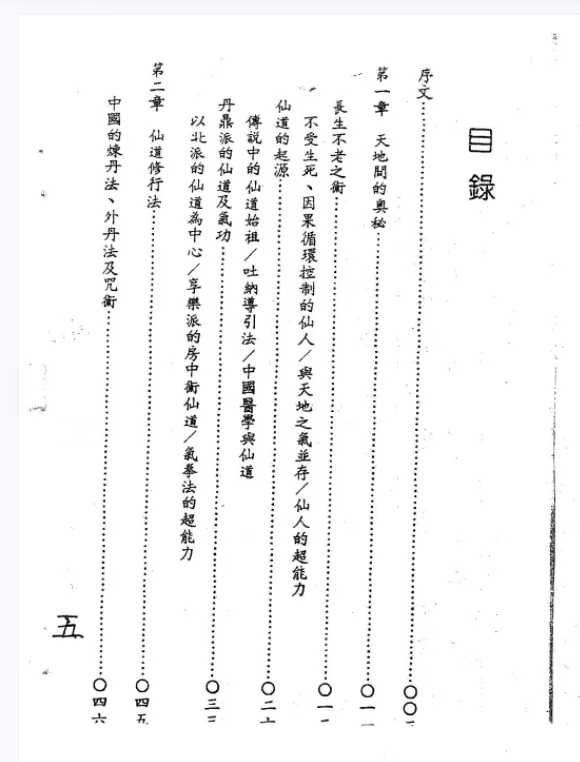 目錄
序文……〇〇
第一章 天地間的奧秘……〇一一
長生不老之術……〇一一
不受生死、因果循環控制的仙人/與天地之氣並存/仙人的超能力
仙道的起源……〇二
傳說中的仙道始祖/吐納導引法/中國醫學與仙道
丹鼎派的仙道及氣功……〇三三
以北派的仙道為中心/享樂派的房中術仙道/氣拳法的超能力
第二章 仙道修行法……〇四五
中國的煉丹法、外丹法及咒術……〇四六
五